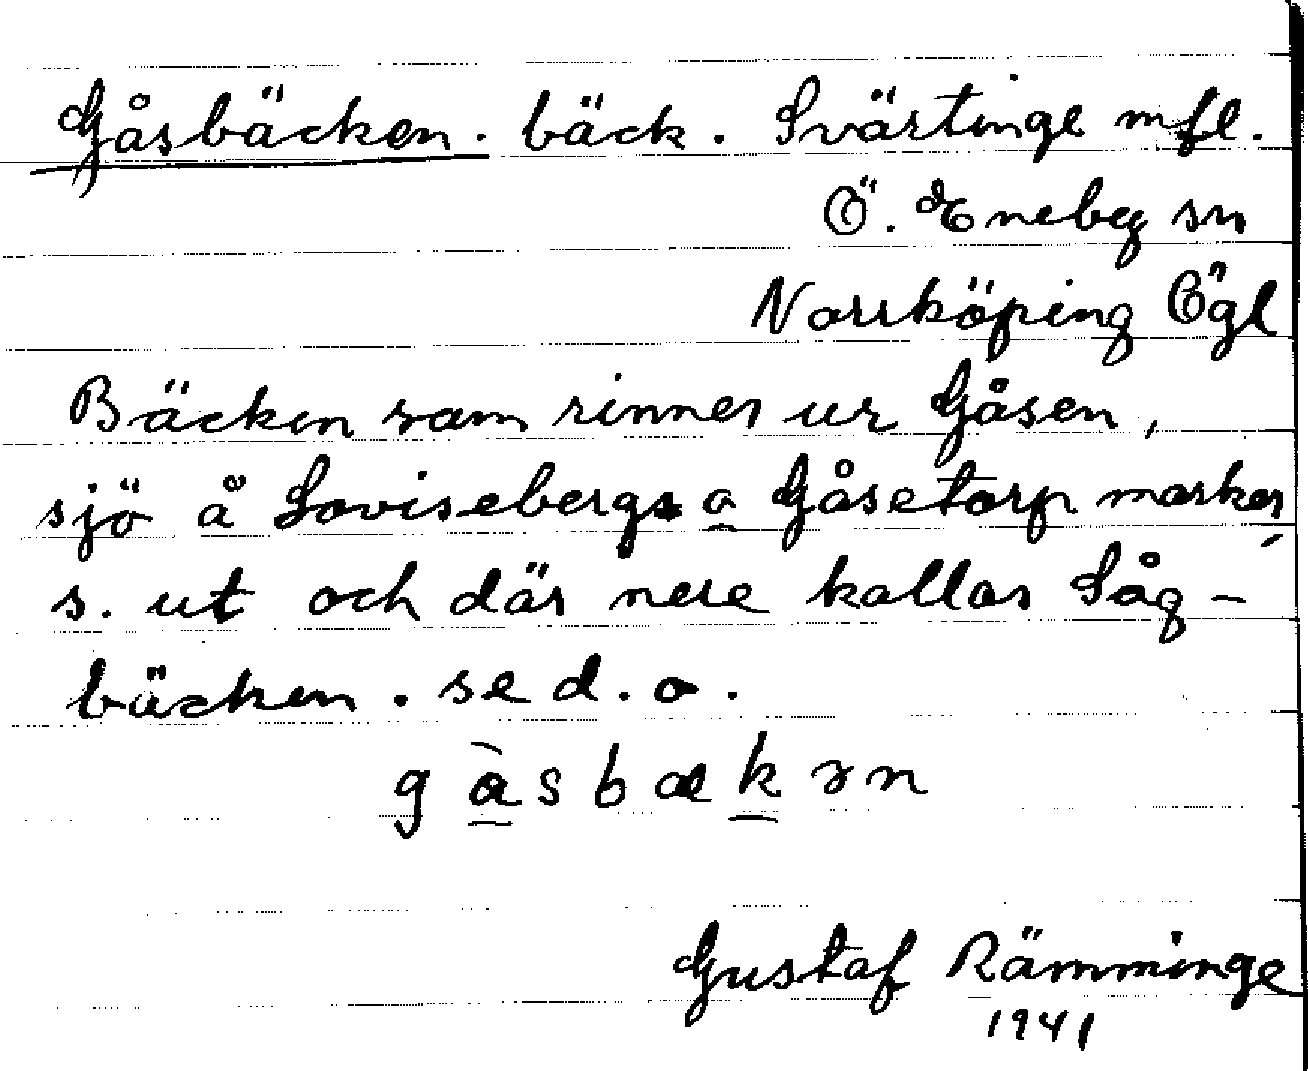 Gåsbäcken. bäck. Svärtinge mfl.
Ö. Eneby sn
Norrköping Ögl
Bäcken som rinner ur Gåsen,
sjö å Lovisebergs o Gåsetorp marker,
s. ut och där nere kallas Såg-
bäcken. se d. o.
gåsbækən
Gustaf Rämminge
1941